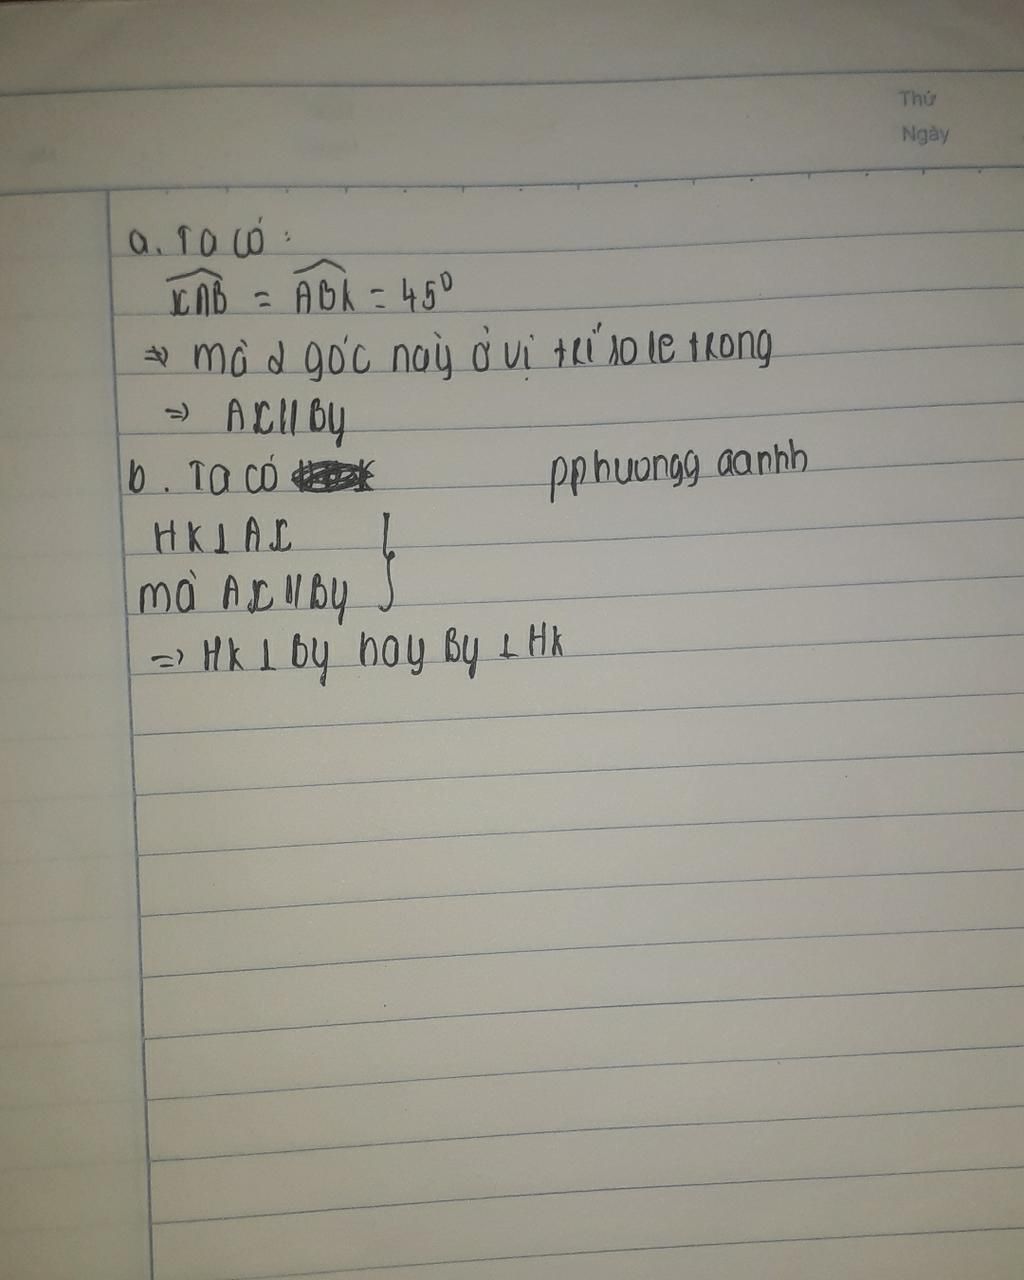 Thứ
Ngày
a. Ta có:
$\widehat{xAB}$ = $\widehat{ABK}$ = 45⁰
=> mà 2 góc này ở vị trí so le trong
=> Ax // By
b. Ta có
pphuongg aanhh
HK ⊥ Ax }
mà Ax // By }
=> HK ⊥ By hay By ⊥ HK